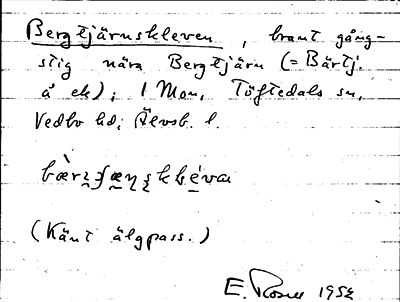 Bergtjärnskleven, brant gång-
stig nära Bergtjärn (= Bärtj.
å ek); 1 Mon, Töftedals sn,
Vedbo hd; Älvsb. l.
(Känt älgpass.)
E. 1952